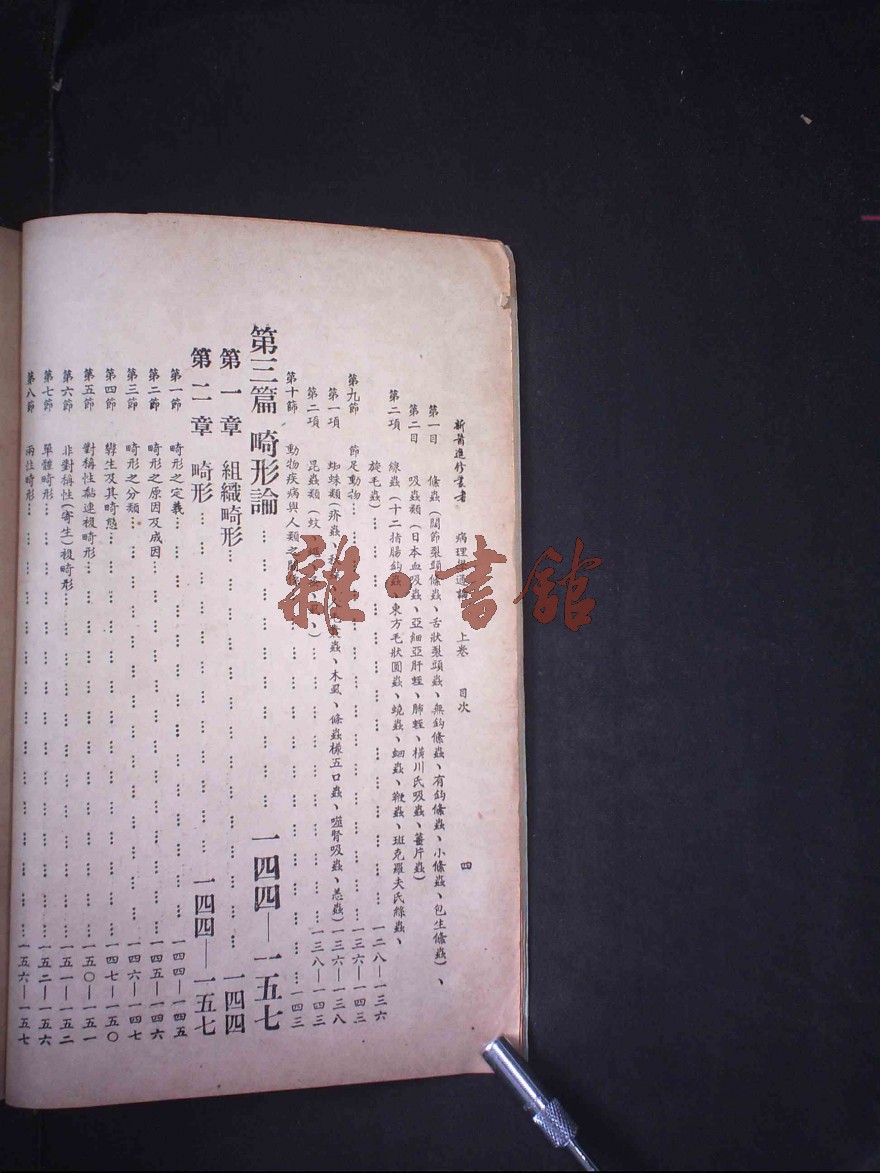 新醫進修叢書 病理學通論 上卷 目次 四
第一目 條蟲(闊節裂頭條蟲、舌狀裂頭蟲、無鈎條蟲、有鈎條蟲、小條蟲、包生條蟲)、
第二目 吸蟲類(日本血吸蟲、亞細亞肝蛭、肺蛭、橫川氏吸蟲、薑片蟲)
第二項 線蟲(十二指腸鈎蟲、東方毛狀圓蟲、蟯蟲、蛔蟲、鞭蟲、班克羅夫氏絲蟲、
旋毛蟲)…………一二八—一三六
第九節 節足動物…………一三六—一四三
第一項 蜘蛛類(疥蟲、蟲、木虱、條蟲樣五口蟲、噬腎吸蟲、恙蟲)一三六—一三八
第二項 昆蟲類(蚊、)…………一三八—一四三
第十節 動物疾病與人類之關係…………一四三
第三篇 畸形論…………一四四—一五七
第一章 組織畸形…………一四四
第二章 畸形…………一四四—一五七
第一節 畸形之定義…………一四四—一四五
第二節 畸形之原因及成因…………一四五—一四六
第三節 畸形之分類…………一四六—一四七
第四節 孿生及其畸態…………一四七—一五〇
第五節 對稱性黏連複畸形…………一五〇—一五一
第六節 非對稱性(寄生)複畸形…………一五一—一五二
第七節 單體畸形…………一五二—一五六
第八節 兩性畸形…………一五六—一五七
雜·書館